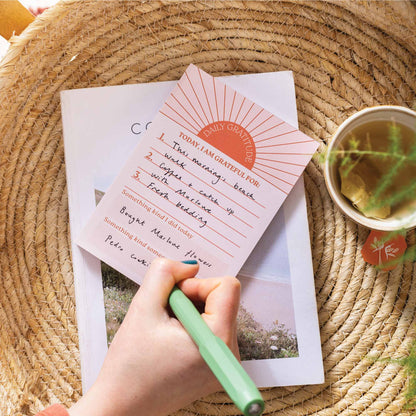 DAILY GRATITUDE
TODAY, I AM GRATEFUL FOR:
1. This morning's beach
walk
2. Coffee & catch up
with Marlowe
3. Fresh bedding
Something kind I did today
Bought Marlowe flowers
Something kind
Pedro